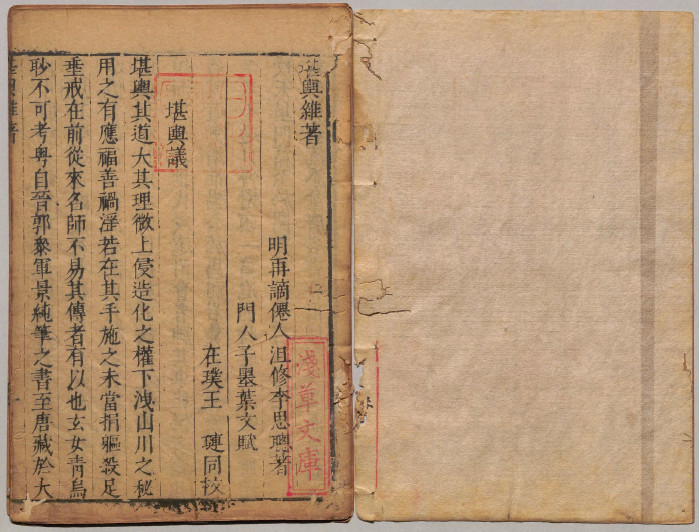 堪輿雜著
明再謫僊人沮修李思聰著
門人子墨葉文賦
在璞王 璉同校
堪輿議
堪輿其道大其理微上侵造化之權下洩山川之秘
用之有應福善禍淫若在其手施之未當捐軀殺足
垂戒在前從來名師不易其傳者有以也玄女青烏
眇不可考粵自晉郭叅軍景純筆之書至唐藏於大
淺草文庫